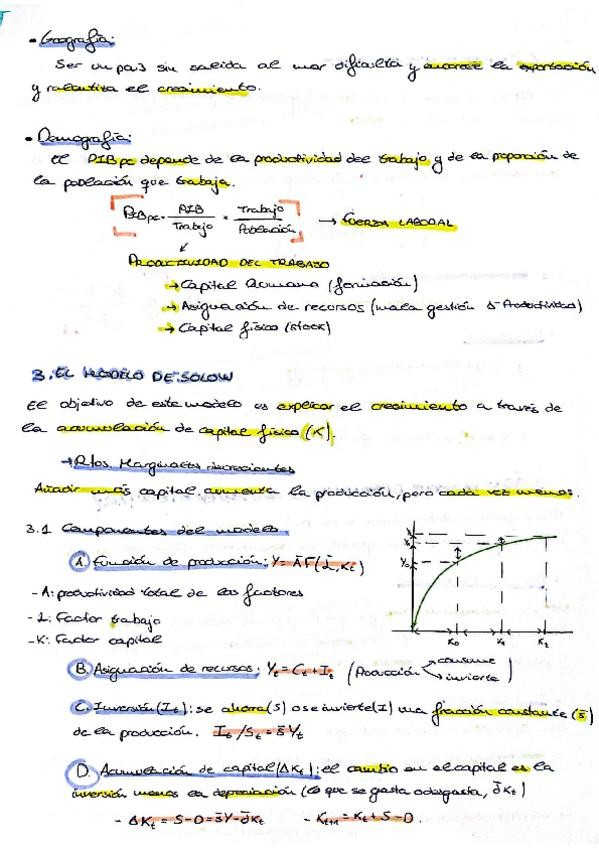 • Geografía:
Ser un país sin salida al mar dificulta y encarece la exportación
y ralentiza el crecimiento.
• Demografía:
El PIBpc depende de la productividad del trabajo y de la proporción de
la población que trabaja.
PIBpc = PIB/Trabajo * Trabajo/Población → FUERZA LABORAL
↙
PRODUCTIVIDAD DEL TRABAJO
→ Capital humano (formación)
→ Asignación de recursos (mala gestión Productividad)
→ Capital físico (stock)
3. EL MODELO DE SOLOW
El objetivo de este modelo es explicar el crecimiento a través de
la acumulación de capital físico (K).
→ Rtos. Marginales decrecientes
Añadir más capital aumenta la producción, pero cada vez menos.
3.1 Componentes del modelo.
A. Función de producción: Y = ĀF(L̄, Kt)
- A: productividad total de los factores
- L: Factor trabajo
- K: Factor capital
Y0
K0 K1 K2
B. Asignación de recursos: Yt = Ct + It (Producción consume
invierte )
C. Inversión (It): se ahorra (S) o se invierte (I) una fracción constante (s̄)
de la producción. It/St = s̄Yt
D. Acumulación de capital (ΔKt): el cambio en el capital es la
inversión menos la depreciación (lo que se gasta o desgasta, d̄Kt)
- ΔKt = S - D = s̄Y - d̄Kt - Kt+1 = Kt + S - D.